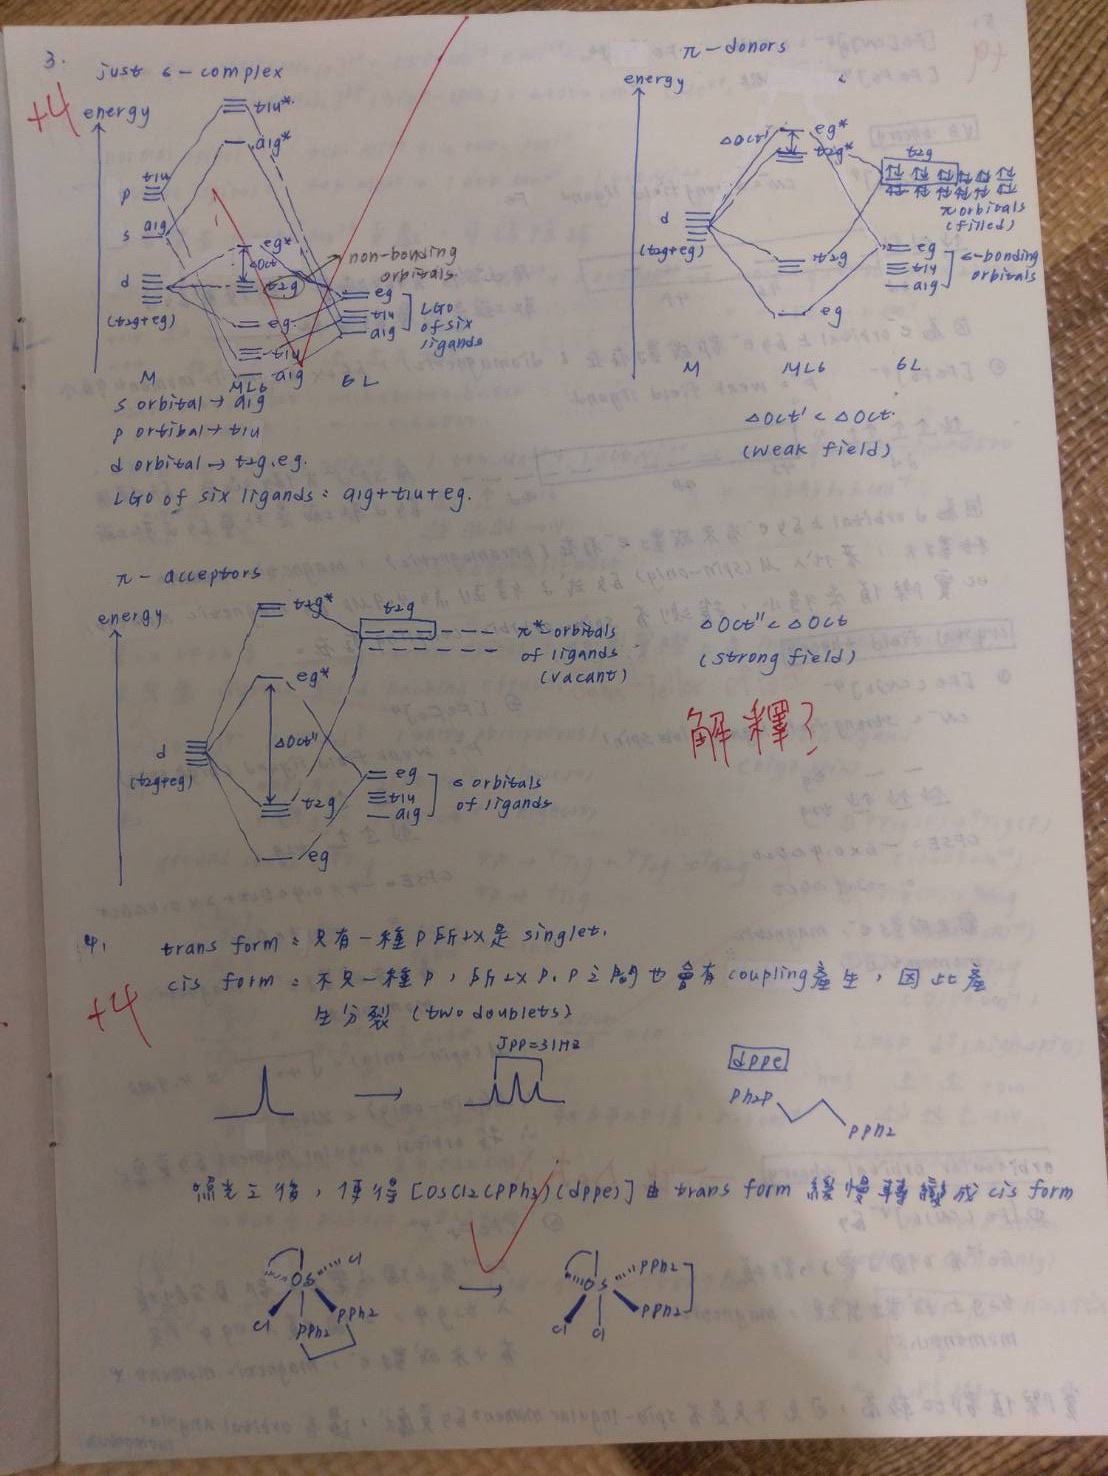 3.
+4
just σ-complex
energy
t1u*
a1g*
t1u
p
a1g
s
eg*
Δoct
t2g
non-bonding
orbitals
d
(t2g+eg)
eg
t1u
a1g
eg
t1u
a1g
LGO
of six
ligands
M
ML6
6L
s orbital → a1g
p ortibal → t1u
d orbital → t2g.eg.
LGO of six ligands: a1g+t1u+eg.
π-donors
energy
Δoct'
eg*
t2g*
t2g
π orbitals
(filled)
d
(t2g+eg)
t2g
eg
t1u
a1g
σ-bonding
orbitals
eg
M
ML6
6L
Δoct' < Δoct.
(weak field)
π-acceptors
energy
t2g*
t2g
π*-orbitals
of ligands
(vacant)
eg*
Δoct"
d
(t2g+eg)
t2g
eg
t1u
a1g
σ orbitals
of ligands
eg
Δoct" < Δoct
(strong field)
解釋?
4.
+4
trans form: 只有一種P所以是 singlet.
cis form: 不只一種P, 所以P.P之間也會有coupling產生, 因此產
生分裂 (two doublets)
JPP=31Hz
dppe
Ph2P
PPh2
照光之後, 使得[OsCl2(PPh3)(dppe)]由 trans form 緩慢轉變成 cis form
Os
Cl
Cl
PPh2
PPh2
Os
PPh2
PPh2
Cl
Cl